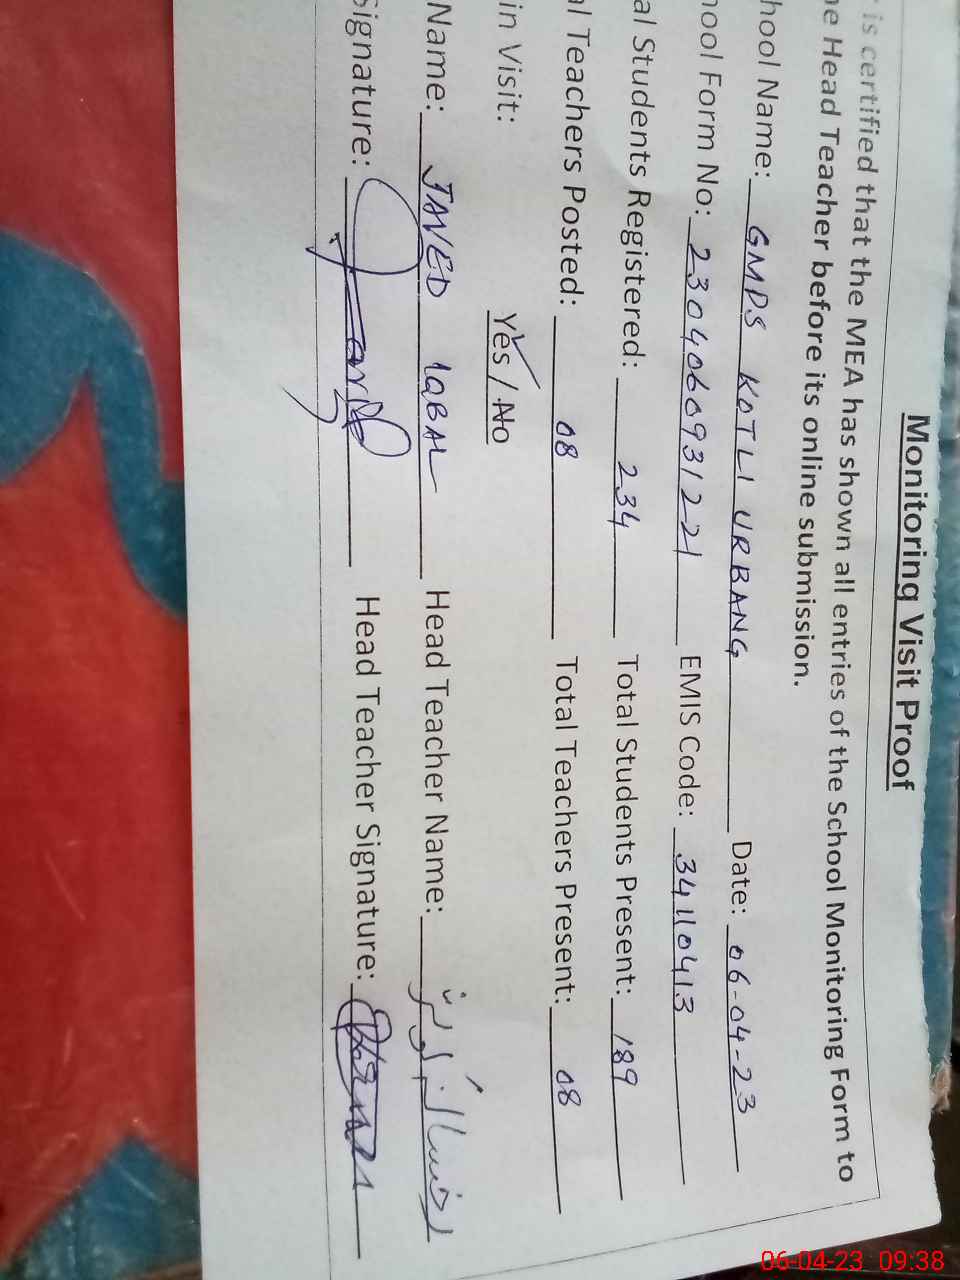 Monitoring Visit Proof
is certified that the MEA has shown all entries of the School Monitoring Form to
he Head Teacher before its online submission.
hool Name: GMPS KOTLI URBANG Date: 06-04-23
hool Form No: 2304060931221 EMIS Code: 34110413
al Students Registered: 234 Total Students Present: 189
al Teachers Posted: 08 Total Teachers Present: 08
in Visit: Yes / No
Name: JAVED IQBAL Head Teacher Name:
Signature: Head Teacher Signature:
06-04-23 09:38